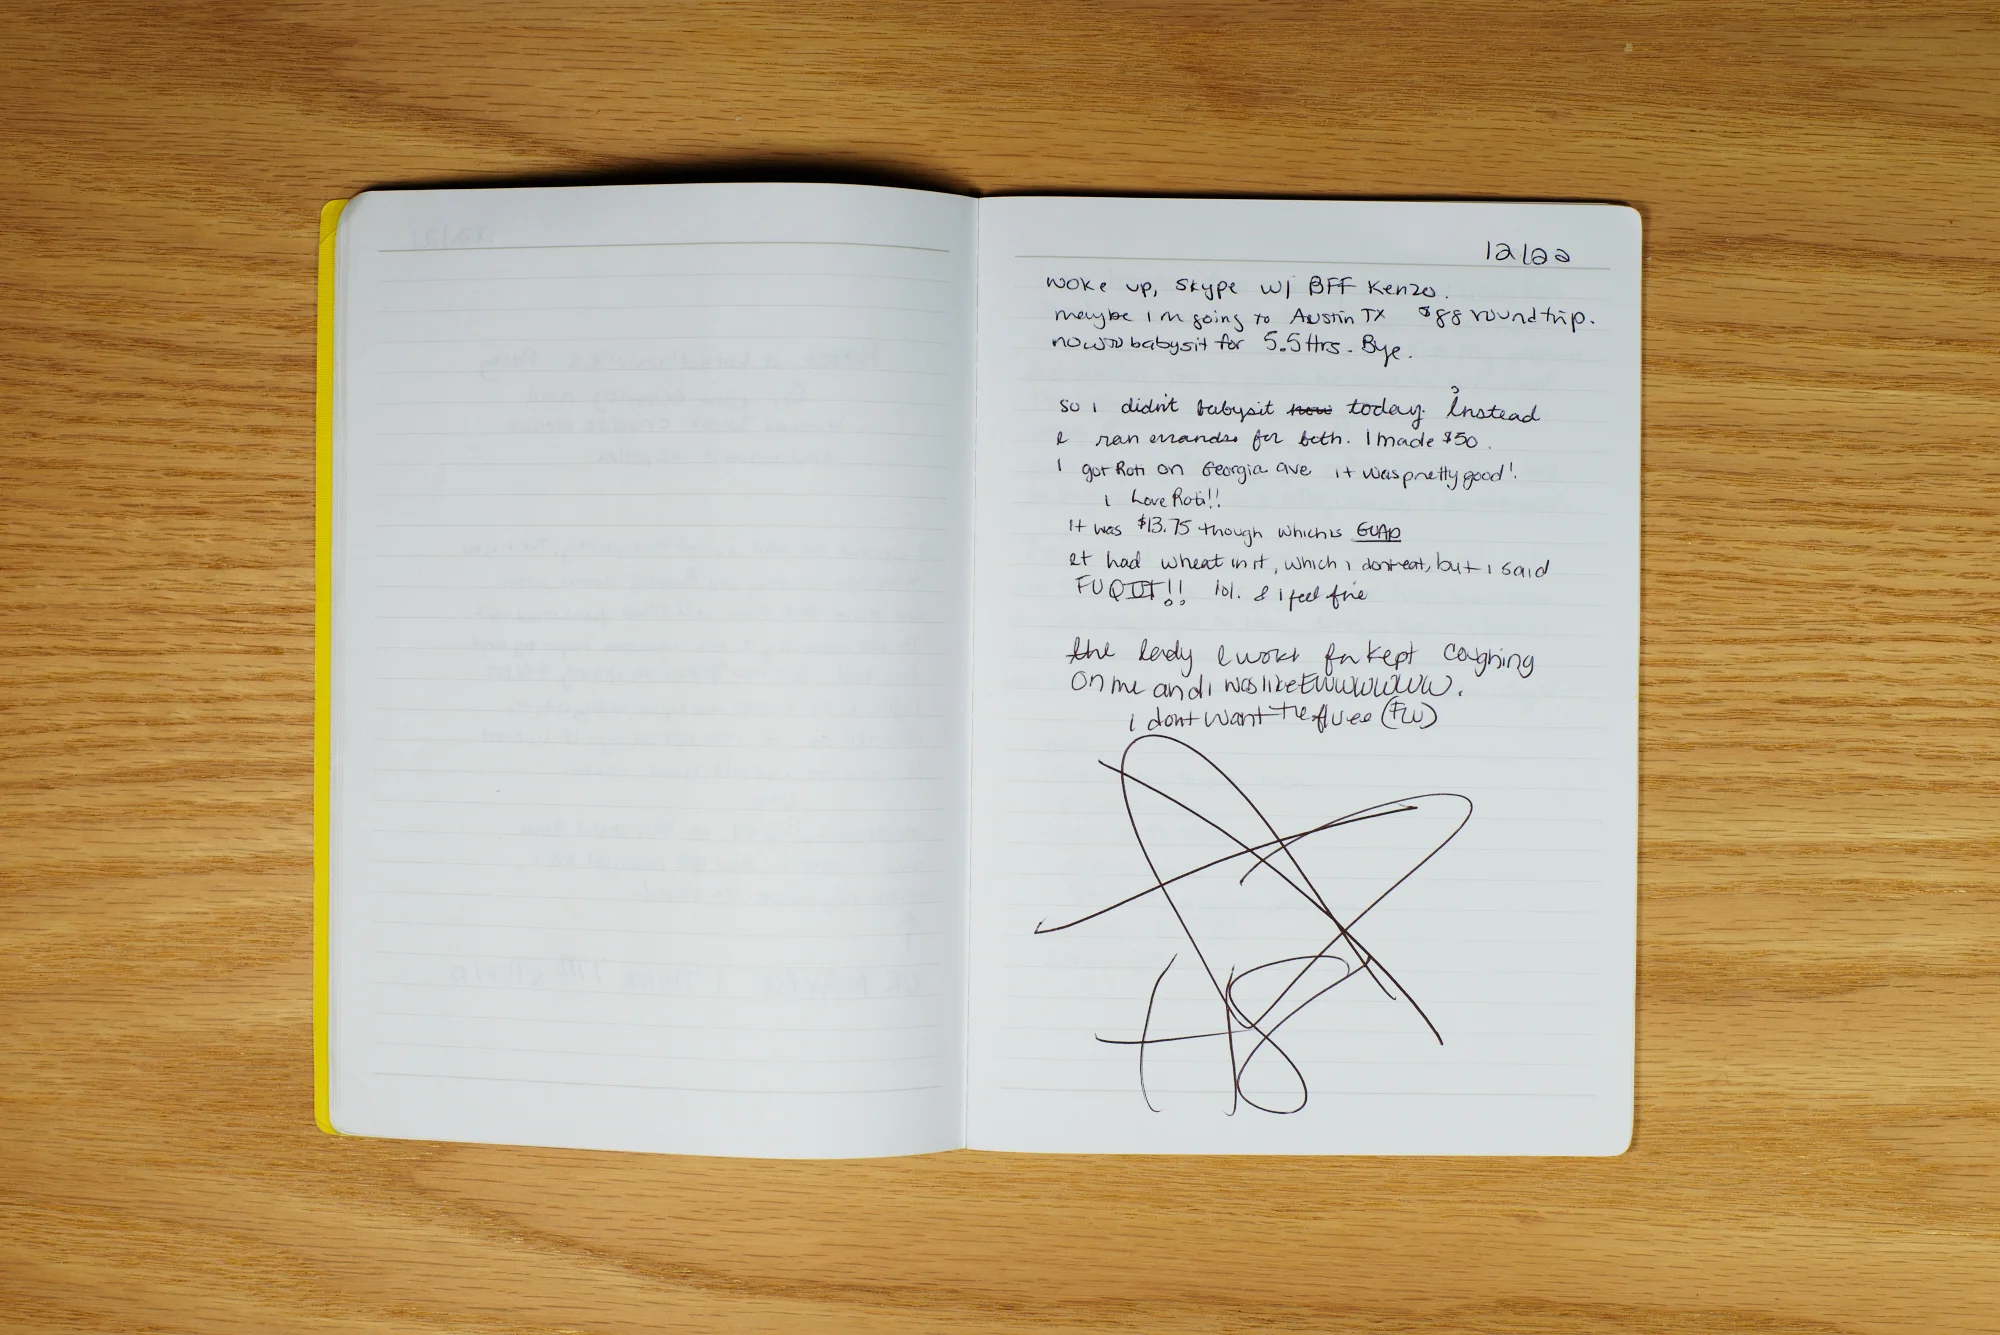 12/22
woke up, Skype w/ BFF Kenzo.
maybe i'm going to Austin TX $88 roundtrip.
now to babysit for 5.5 Hrs. Bye.
so i didn't babysit now today. Instead
I ran errands for both. I made $50.
I got Roti on Georgia ave it was pretty good!
i Love Roti!!
It was $13.75 though which is GUAP
It had wheat in it, which i dont eat, but i said
FUQ IT!! lol. & i feel fine
the lady I work for kept coughing
on me and i was like EWWWWWW.
i dont want the fluee (FLU)